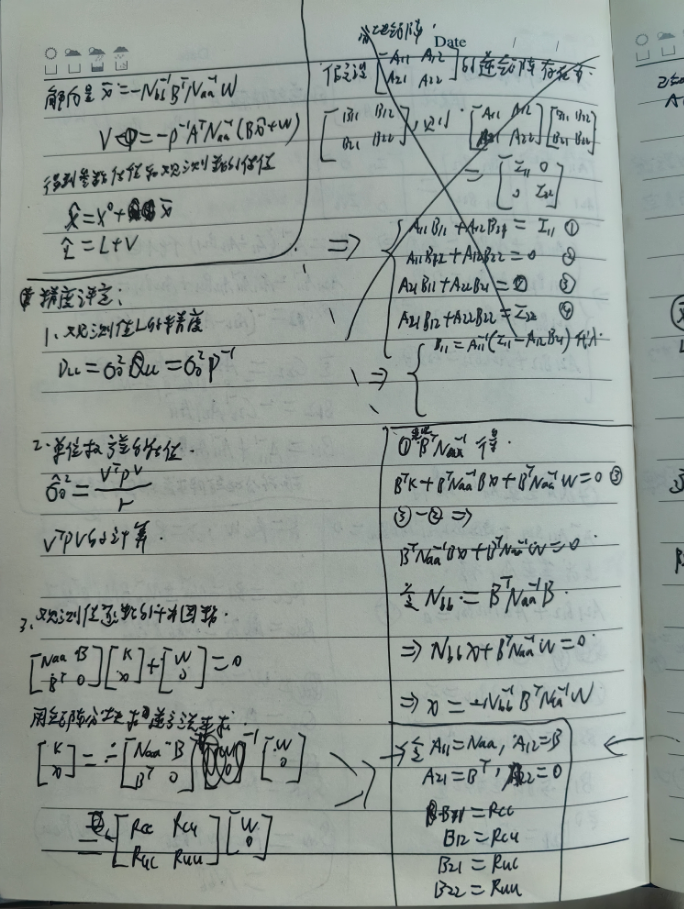 解为是 x̂ = -Nbb⁻¹BᵀNaa⁻¹W
V = -P⁻¹AᵀNaa⁻¹(Bx̂+W)
得到参数估值和观测值的估值
X̂ = X⁰ + x̂
L̂ = L+V
精度评定:
1、观测值L的精度
D_LL = σ₀²Q_LL = σ₀²P⁻¹
2. 单位权方差的估值.
σ̂₀² = VᵀPV / r
VᵀPV的计算.
3、观测值函数的协因数.
[Naa B; Bᵀ 0][K; x] + [W; 0] = 0
用矩阵分块求逆方法来求.
[K; x] = -[Naa B; Bᵀ 0]⁻¹[W; 0]
= [Rcc Rcu; Ruc Ruu][W; 0]
Date
假设 [A11 A12; A21 A22] 的逆矩阵存在为
[B11 B12; B21 B22], 则 [A11 A12; A21 A22][B11 B12; B21 B22]
= [I11 0; 0 I22]
⇒ A11B11 + A12B21 = I11 ①
A11B12 + A12B22 = 0 ②
A21B11 + A22B21 = 0 ③
A21B12 + A22B22 = I22 ④
⇒ { B11 = A11⁻¹(I11 - A12B21) 代入
① BᵀNaa⁻¹ 得.
BᵀK + BᵀNaa⁻¹Bx + BᵀNaa⁻¹W = 0 ③
③-② ⇒
BᵀNaa⁻¹Bx + BᵀNaa⁻¹W = 0
令 Nbb = BᵀNaa⁻¹B.
⇒ Nbb x + BᵀNaa⁻¹W = 0
⇒ x = -Nbb⁻¹BᵀNaa⁻¹W
令 A11 = Naa, A12 = B
A21 = Bᵀ, A22 = 0
B11 = Rcc
B12 = Rcu
B21 = Ruc
B22 = Ruu